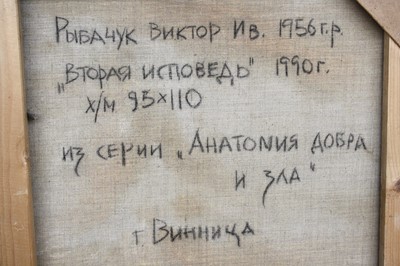 Рыбачук Виктор Ив. 1956г.р.
„Вторая исповедь" 1990г.
х/м 95×110
из серии „Анатомия добра
и зла"
г Винница